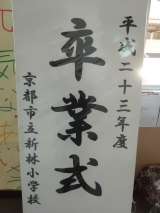 平成二十三年度
卒業式
京都市立新林小学校